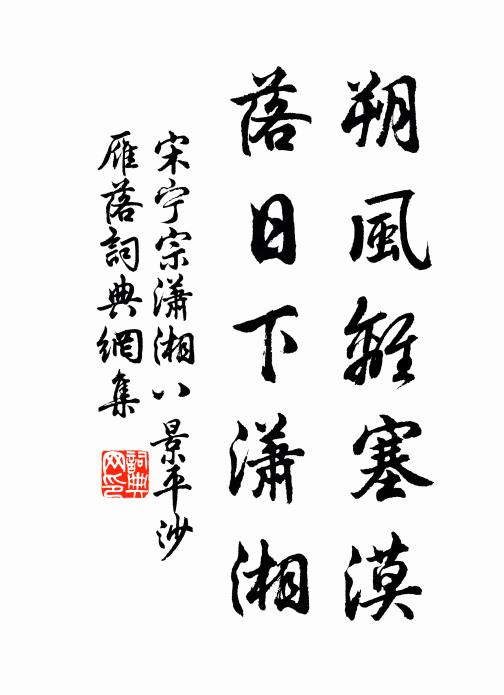 朔風離塞漠
落日下瀟湘
宋宁宗瀟湘八景平沙
雁落詞典網集
詞典网印